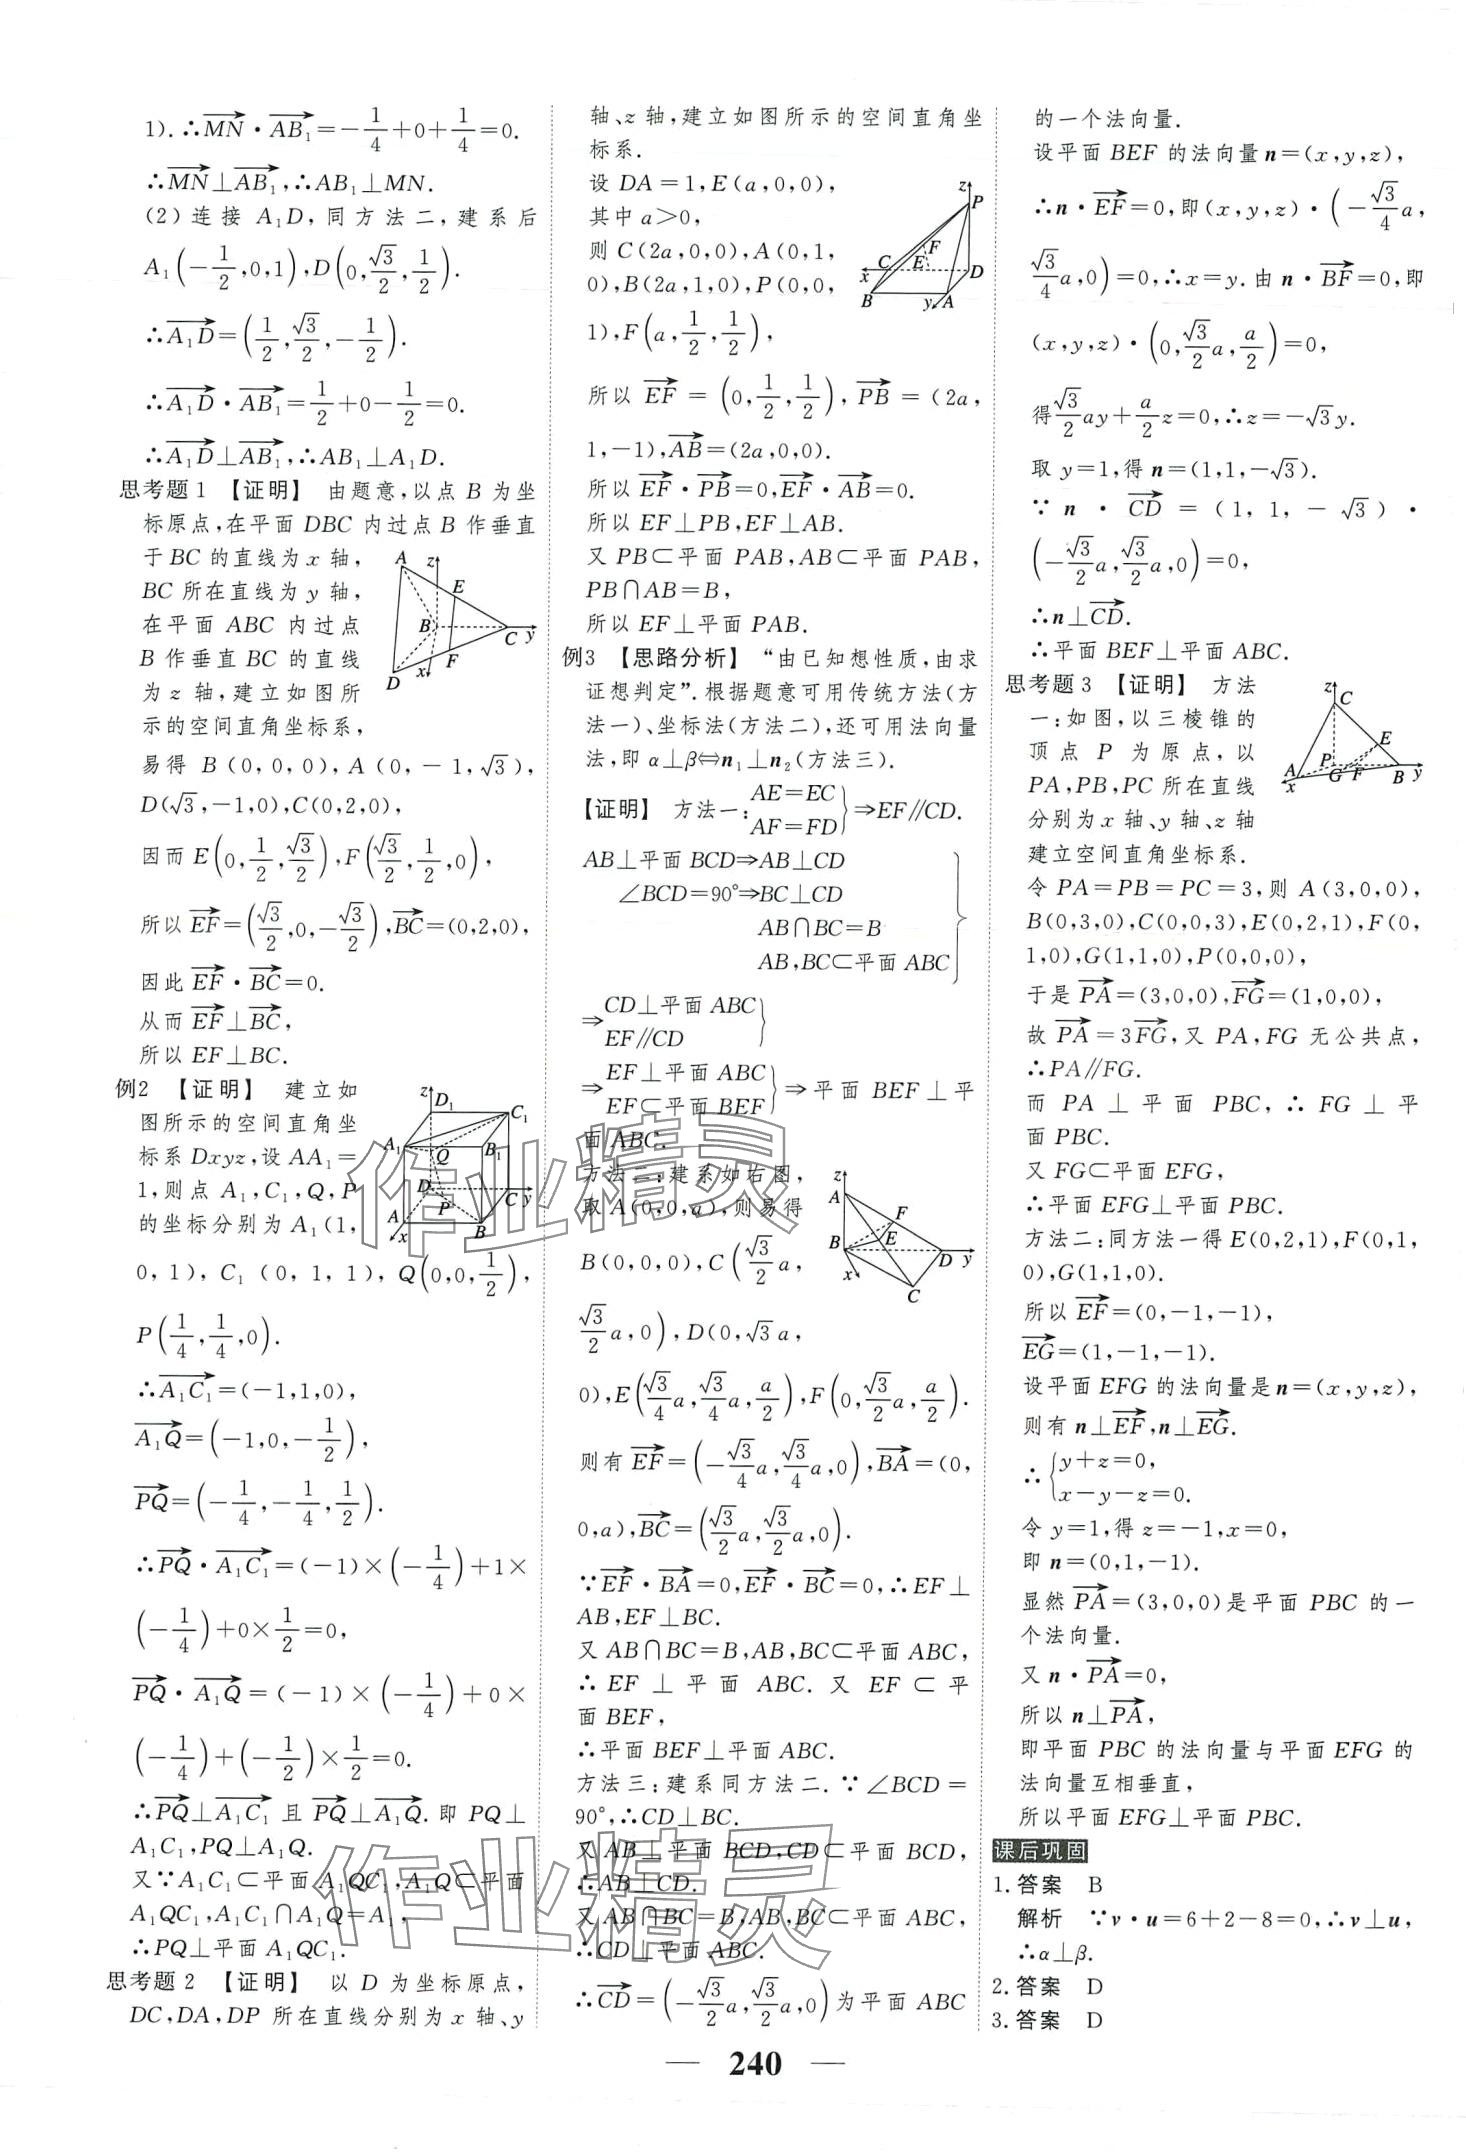 1).∴MN·AB₁=-1/4+0+1/4=0.
∴MN⊥AB₁,∴AB₁⊥MN.
(2)连接 A₁D,同方法二,建系后
A₁(-1/2,0,1),D(0,√3/2,1/2).
∴A₁D=(1/2,√3/2,-1/2).
∴A₁D·AB₁=1/2+0-1/2=0.
∴A₁D⊥AB₁,∴AB₁⊥A₁D.
思考题1 【证明】 由题意,以点 B 为坐
标原点,在平面 DBC 内过点 B 作垂直
于 BC 的直线为 x 轴,
BC 所在直线为 y 轴,
在平面 ABC 内过点
B 作垂直 BC 的直线
为 z 轴,建立如图所
示的空间直角坐标系,
易得 B(0,0,0),A(0,-1,√3),
D(√3,-1,0),C(0,2,0),
因而 E(0,1/2,√3/2),F(√3/2,1/2,0),
所以 EF=(√3/2,0,-√3/2),BC=(0,2,0),
因此 EF·BC=0.
从而 EF⊥BC,
所以 EF⊥BC.
例2 【证明】 建立如
图所示的空间直角坐
标系 Dxyz,设 AA₁=
1,则点 A₁,C₁,Q,P
的坐标分别为 A₁(1,
0,1),C₁(0,1,1),Q(0,0,1/2),
P(1/4,1/4,0).
∴A₁C₁=(-1,1,0),
A₁Q=(-1,0,-1/2),
PQ=(-1/4,-1/4,1/2).
∴PQ·A₁C₁=(-1)×(-1/4)+1×
(-1/4)+0×1/2=0,
PQ·A₁Q=(-1)×(-1/4)+0×
(-1/4)+(-1/2)×1/2=0.
∴PQ⊥A₁C₁ 且 PQ⊥A₁Q.即 PQ⊥
A₁C₁,PQ⊥A₁Q.
又∵A₁C₁⊂平面 A₁QC₁,A₁Q⊂平面
A₁QC₁,A₁C₁∩A₁Q=A₁,
∴PQ⊥平面 A₁QC₁.
思考题2 【证明】 以 D 为坐标原点,
DC,DA,DP 所在直线分别为 x 轴、y
轴、z 轴,建立如图所示的空间直角坐
标系.
设 DA=1,E(a,0,0),
其中 a>0,
则 C(2a,0,0),A(0,1,
0),B(2a,1,0),P(0,0,
1),F(a,1/2,1/2),
所以 EF=(0,1/2,1/2),PB=(2a,
1,-1),AB=(2a,0,0).
所以 EF·PB=0,EF·AB=0.
所以 EF⊥PB,EF⊥AB.
又 PB⊂平面 PAB,AB⊂平面 PAB,
PB∩AB=B,
所以 EF⊥平面 PAB.
例3 【思路分析】 “由已知想性质,由求
证想判定”.根据题意可用传统方法(方
法一)、坐标法(方法二),还可用法向量
法,即 α⊥β⇔n₁⊥n₂(方法三).
【证明】 方法一:AE=EC
AF=FD}⇒EF∥CD.
AB⊥平面 BCD⇒AB⊥CD
∠BCD=90°⇒BC⊥CD
AB∩BC=B
AB,BC⊂平面 ABC}
⇒CD⊥平面 ABC
EF∥CD}
⇒EF⊥平面 ABC
EF⊂平面 BEF}⇒平面 BEF⊥平
面 ABC.
方法二:建系如右图,
取 A(0,0,a),则易得
B(0,0,0),C(√3/2a,
√3/2a,0),D(0,√3a,
0),E(√3/4a,√3/4a,a/2),F(0,√3/2a,a/2).
则有 EF=(-√3/4a,√3/4a,0),BA=(0,
0,a),BC=(√3/2a,√3/2a,0).
∵EF·BA=0,EF·BC=0,∴EF⊥
AB,EF⊥BC.
又 AB∩BC=B,AB,BC⊂平面 ABC,
∴EF⊥平面 ABC.又 EF⊂平
面 BEF,
∴平面 BEF⊥平面 ABC.
方法三:建系同方法二.∵∠BCD=
90°,∴CD⊥BC.
又 AB⊥平面 BCD,CD⊂平面 BCD,
∴AB⊥CD.
又 AB∩BC=B,AB,BC⊂平面 ABC,
∴CD⊥平面 ABC.
∴CD=(-√3/2a,√3/2a,0)为平面 ABC
的一个法向量.
设平面 BEF 的法向量 n=(x,y,z),
∴n·EF=0,即(x,y,z)·(-√3/4a,
√3/4a,0)=0,∴x=y.由 n·BF=0,即
(x,y,z)·(0,√3/2a,a/2)=0,
得√3/2ay+a/2z=0,∴z=-√3y.
取 y=1,得 n=(1,1,-√3).
∵n·CD=(1,1,-√3)·
(-√3/2a,√3/2a,0)=0,
∴n⊥CD.
∴平面 BEF⊥平面 ABC.
思考题3 【证明】 方法
一:如图,以三棱锥的
顶点 P 为原点,以
PA,PB,PC 所在直线
分别为 x 轴、y 轴、z 轴
建立空间直角坐标系.
令 PA=PB=PC=3,则 A(3,0,0),
B(0,3,0),C(0,0,3),E(0,2,1),F(0,
1,0),G(1,1,0),P(0,0,0),
于是 PA=(3,0,0),FG=(1,0,0),
故 PA=3FG,又 PA,FG 无公共点,
∴PA∥FG.
而 PA⊥平面 PBC,∴FG⊥平
面 PBC.
又 FG⊂平面 EFG,
∴平面 EFG⊥平面 PBC.
方法二:同方法一得 E(0,2,1),F(0,1,
0),G(1,1,0).
所以 EF=(0,-1,-1),
EG=(1,-1,-1).
设平面 EFG 的法向量是 n=(x,y,z),
则有 n⊥EF,n⊥EG.
∴{y+z=0,
x-y-z=0.
令 y=1,得 z=-1,x=0,
即 n=(0,1,-1).
显然 PA=(3,0,0)是平面 PBC 的一
个法向量.
又 n·PA=0,
所以 n⊥PA,
即平面 PBC 的法向量与平面 EFG 的
法向量互相垂直,
所以平面 EFG⊥平面 PBC.
课后巩固
1.答案 B
解析 ∵v·u=6+2-8=0,∴v⊥u,
∴α⊥β.
2.答案 D
3.答案 D
— 240 —
作业精灵
作业精灵